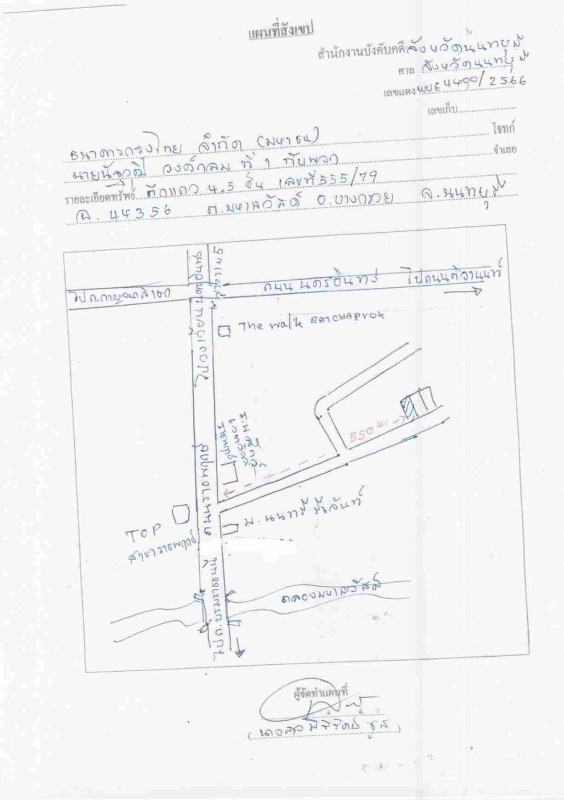 แผนที่สังเขป
สำนักงานบังคับคดี จังหวัดนนทบุรี
ศาล จังหวัดนนทบุรี
เลขแดง ผบE4490/2566
เลขเก็บ
ธนาคารกรุงไทย จำกัด (มหาชน) โจทก์
นายณัฐวุฒิ วงค์กลม ที่ 1 กับพวก จำเลย
รายละเอียดทรัพย์ ตึกแถว 4.5 ชั้น เลขที่ 555/79
ฉ. 44356 ต.มหาสวัสดิ์ อ.บางกรวย จ.นนทบุรี
ไปถ.กาญจนาภิเษก
ถนน นครอินทร์
ไปถนนติวานนท์
The Walk RATCHAPRUK
550 ม.
ถนนราชพฤกษ์
TOP
สาขาราชพฤกษ์
ม. นนทรี
คลองมหาสวัสดิ์
ไปถ.บรมราชชนนี
ผู้จัดทำแผนที่